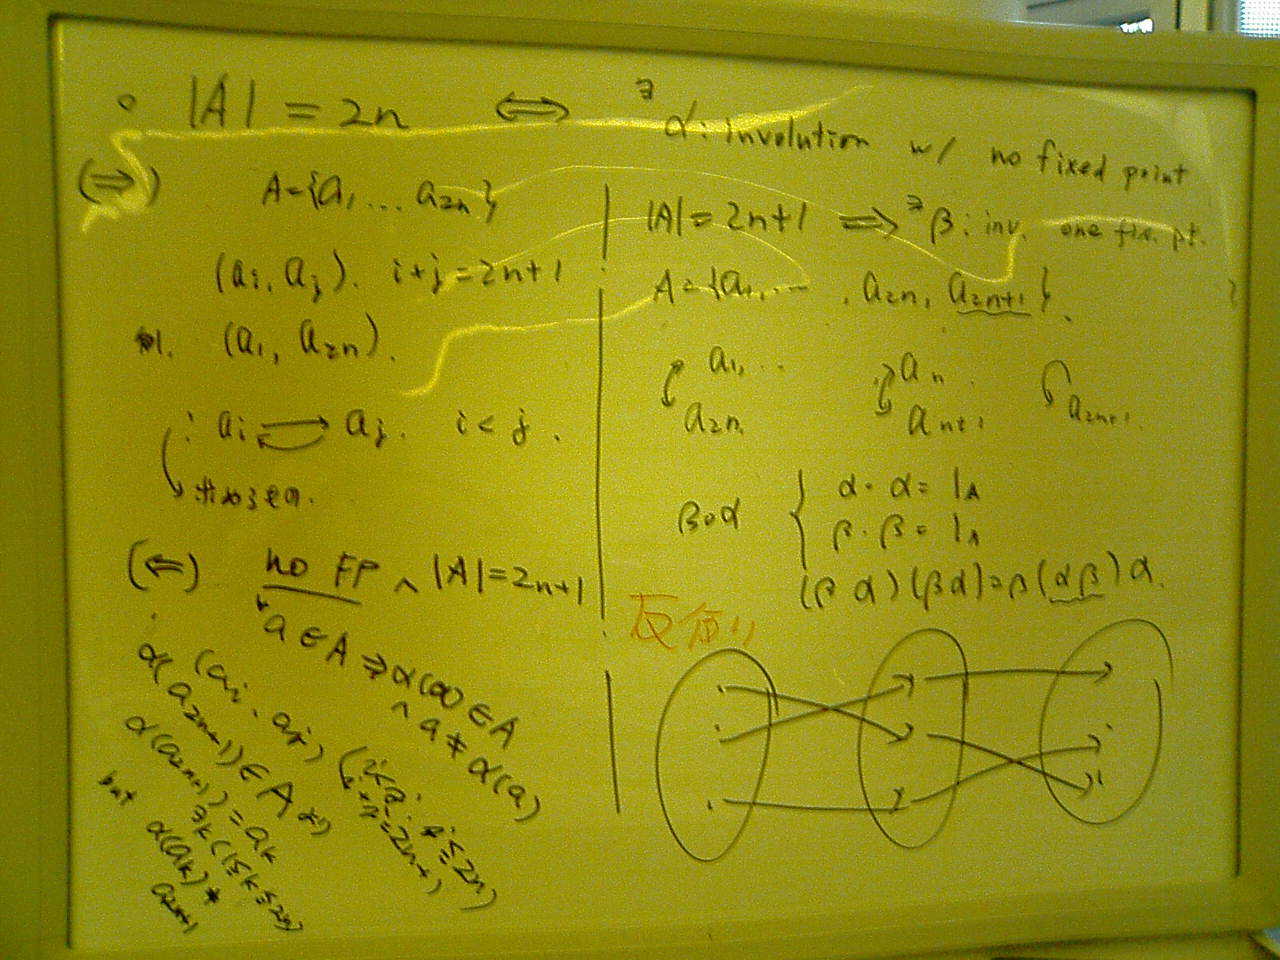 。 |A| = 2n ⟺ ∃α: involution w/ no fixed point
(⇒) A={a₁, ... a₂ₙ}
(aᵢ, aⱼ). i+j=2n+1
例. (a₁, a₂ₙ).
: aᵢ ⇄ aⱼ. i < j.
求めるもの.
(⇐) no FP ∧ |A|=2n+1
a ∈ A ⇒ α(a) ∈ A
∧ a ≠ α(a)
(aᵢ, aⱼ)
α(a₂ₙ₊₁) ∈ A より
α(a₂ₙ₊₁) = aₖ
∃k (1≤k≤2n)
but α(aₖ) ≠
a₂ₙ₊₁
|A|=2n+1 ⇒ ∃β: inv. one fix. pt.
A={a₁, ... , a₂ₙ, a₂ₙ₊₁}.
a₁, .. aₙ .
a₂ₙ. aₙ₊₁ a₂ₙ₊₁.
β∘α { α・α = 1_A
β・β = 1_A
(β α)(βα)=β(αβ)α.
反例